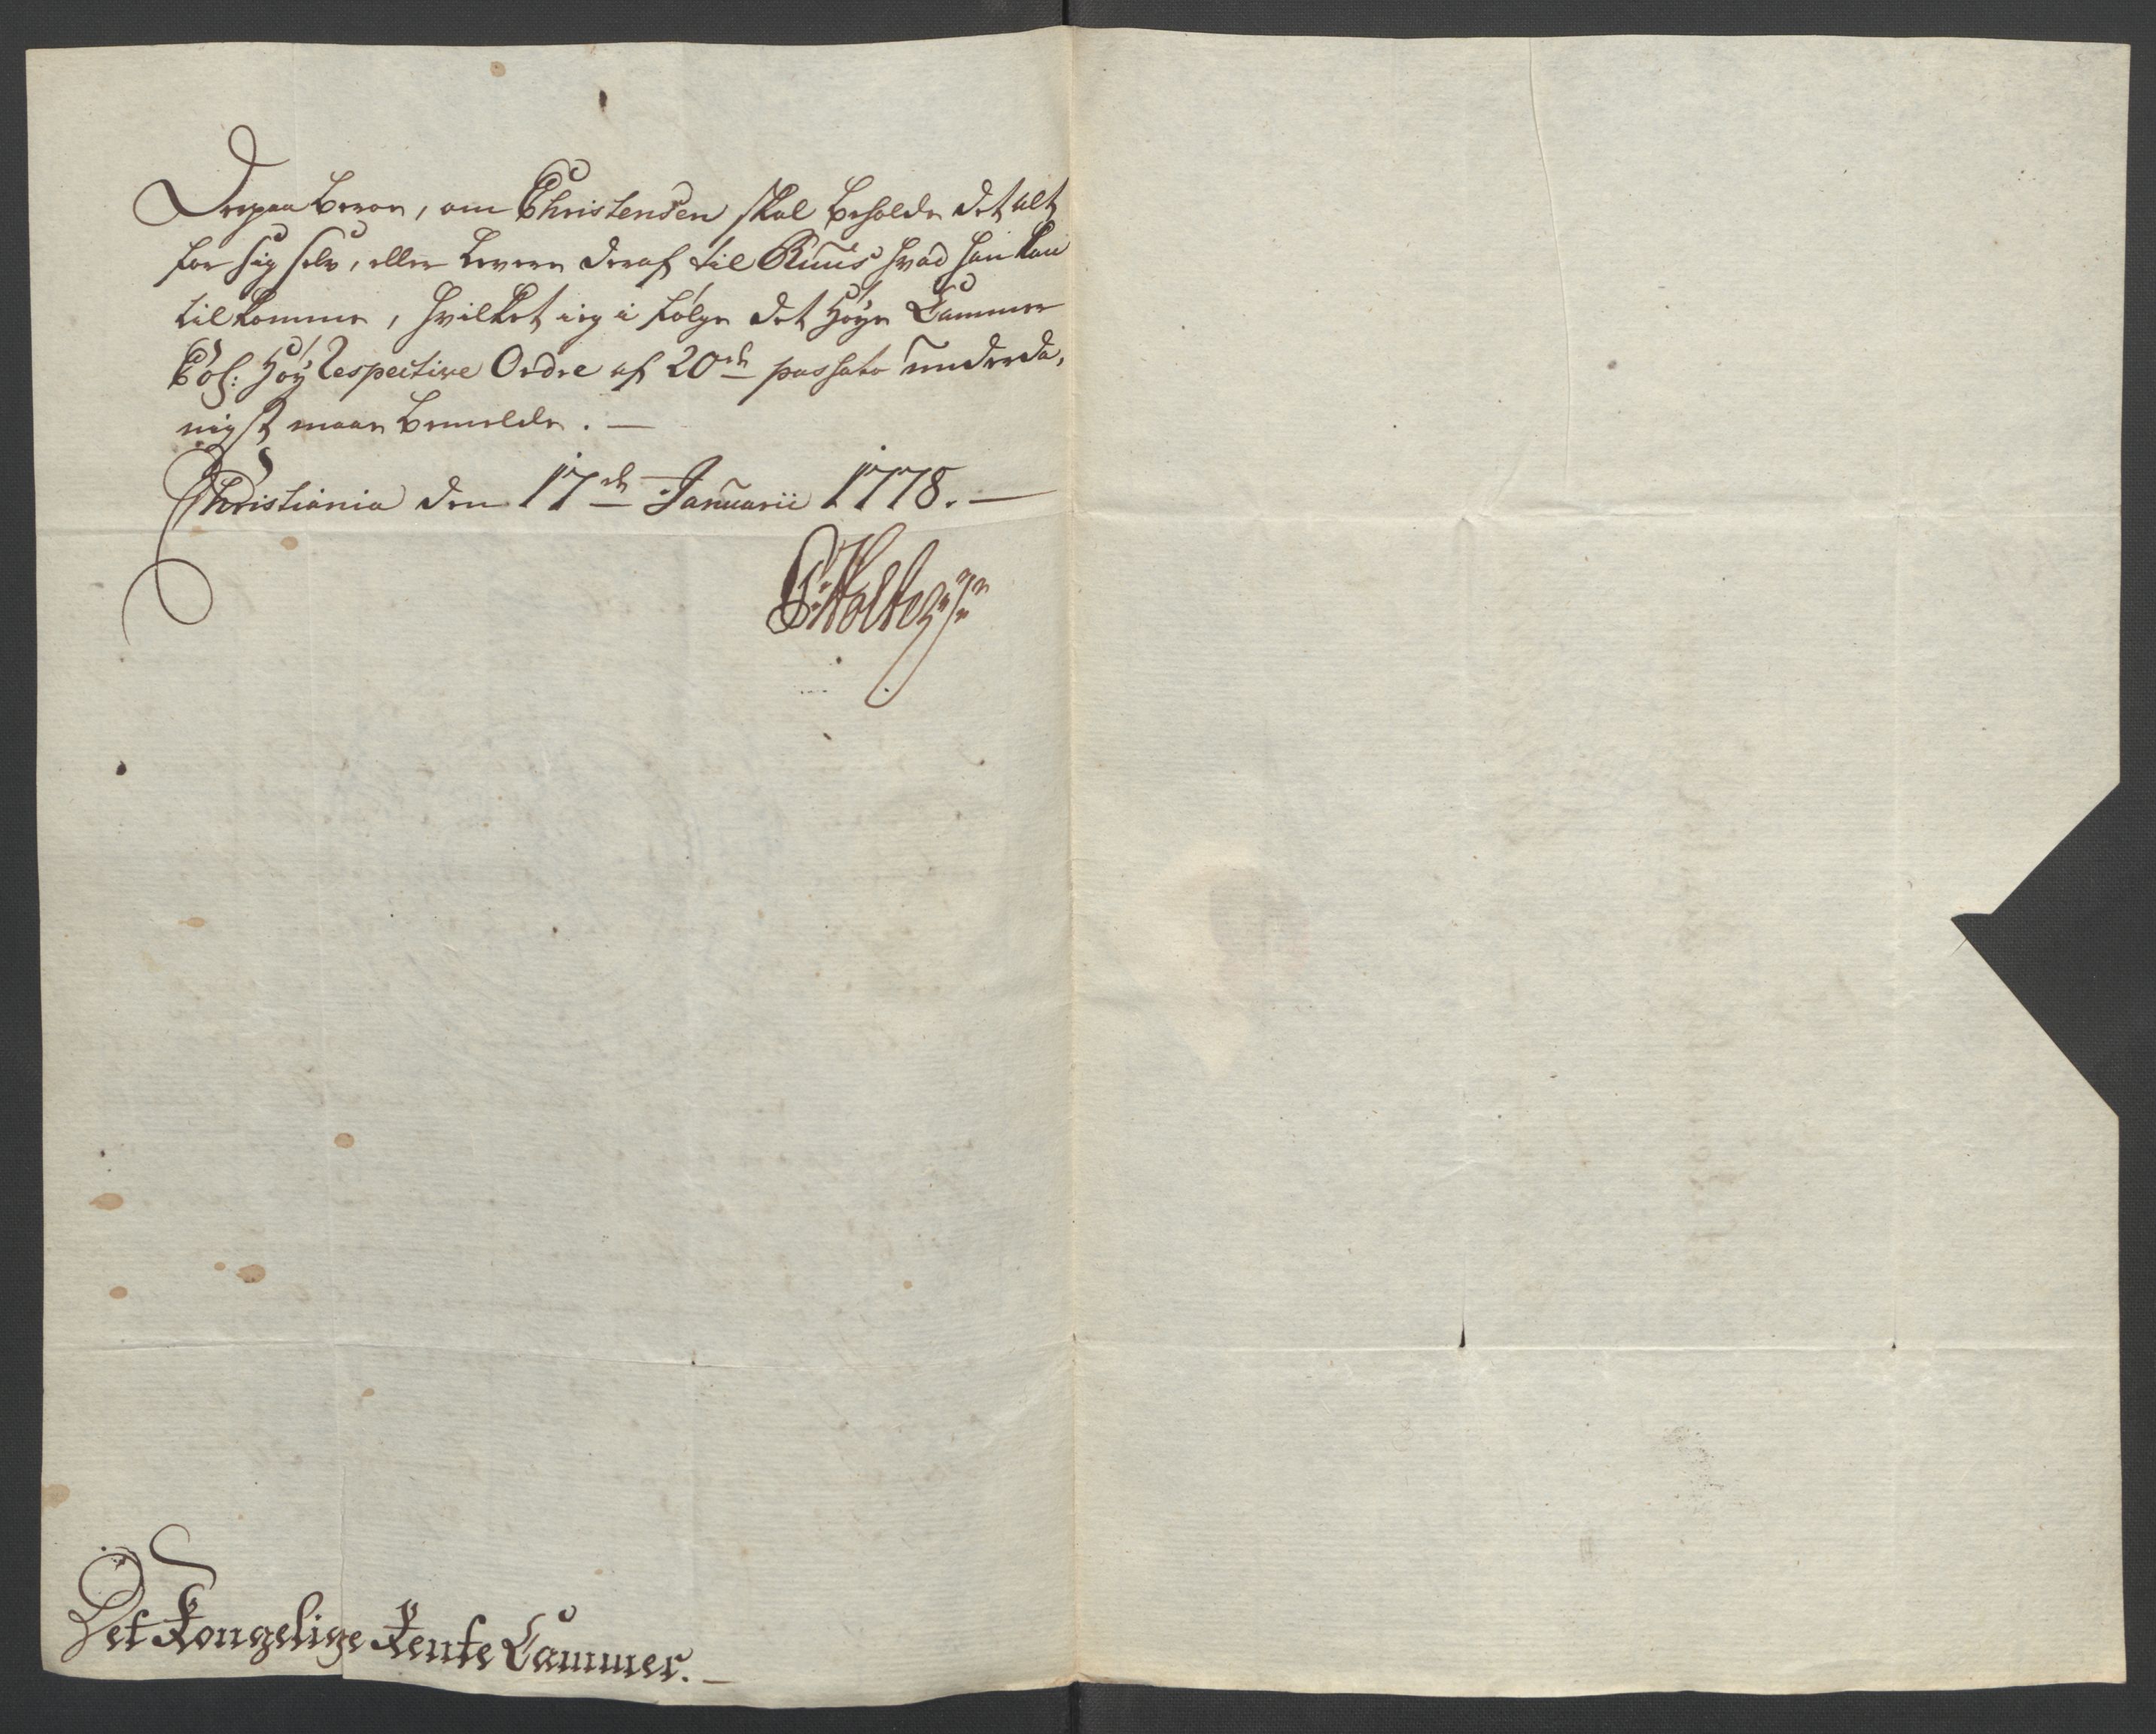 Derpaa beroer, om Christensen skal beholde det alt
for sig selv, eller levere deraf til Ruus hvad han kan
tilkomme, hvilket ieg i følge det høye Cammer
Col: høy respective Ordre af 20de passato underda,
nigst maae bemelde. —
Christiania den 17de Januarii 1778. —
Holte
Det Kongelige Rente Cammer. —